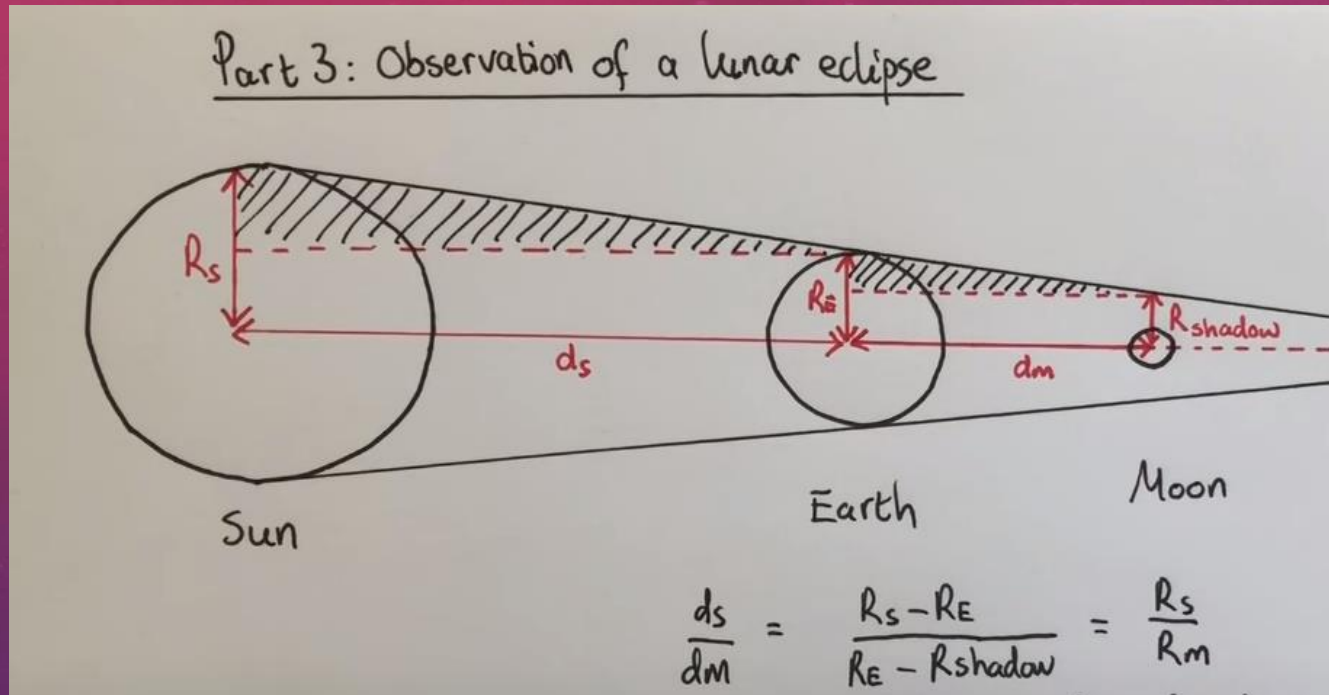 Part 3: Observation of a lunar eclipse
Rs
RE
Rshadow
ds
dm
Sun
Earth
Moon
ds/dm = Rs - RE / RE - Rshadow = Rs/Rm